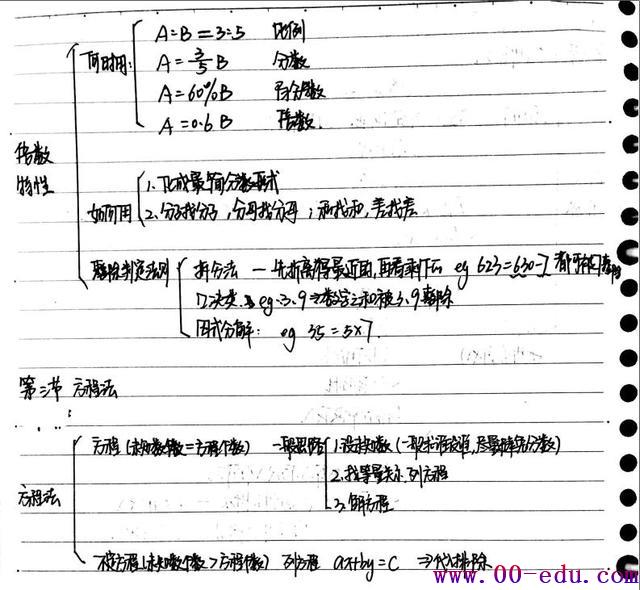 何时用: A:B=3:5 比例
A=3/5 B 分数
A=60%B 百分数
A=0.6B 倍数.
倍数
特性
如何用 1. 化成最简分数形式
2. 分子找分子, 分母找分母; 和找和, 差找差
整除判定法则 拆分法 — 先拆离得最近的, 再看剩下 eg 623=630-7 都可被7整除
口诀类 eg 3.9⇒数字之和被3.9整除
因式分解: eg 35=5×7.
第二节 方程法
方程法
方程(未知数个数=方程个数) 一般思路 1. 设未知数(一般求谁设谁, 尽量避免分数)
2. 找等量关系, 列方程
3. 解方程
不定方程(未知数个数>方程个数) 列方程 ax+by=c ⇒代入排除
www.00-edu.com